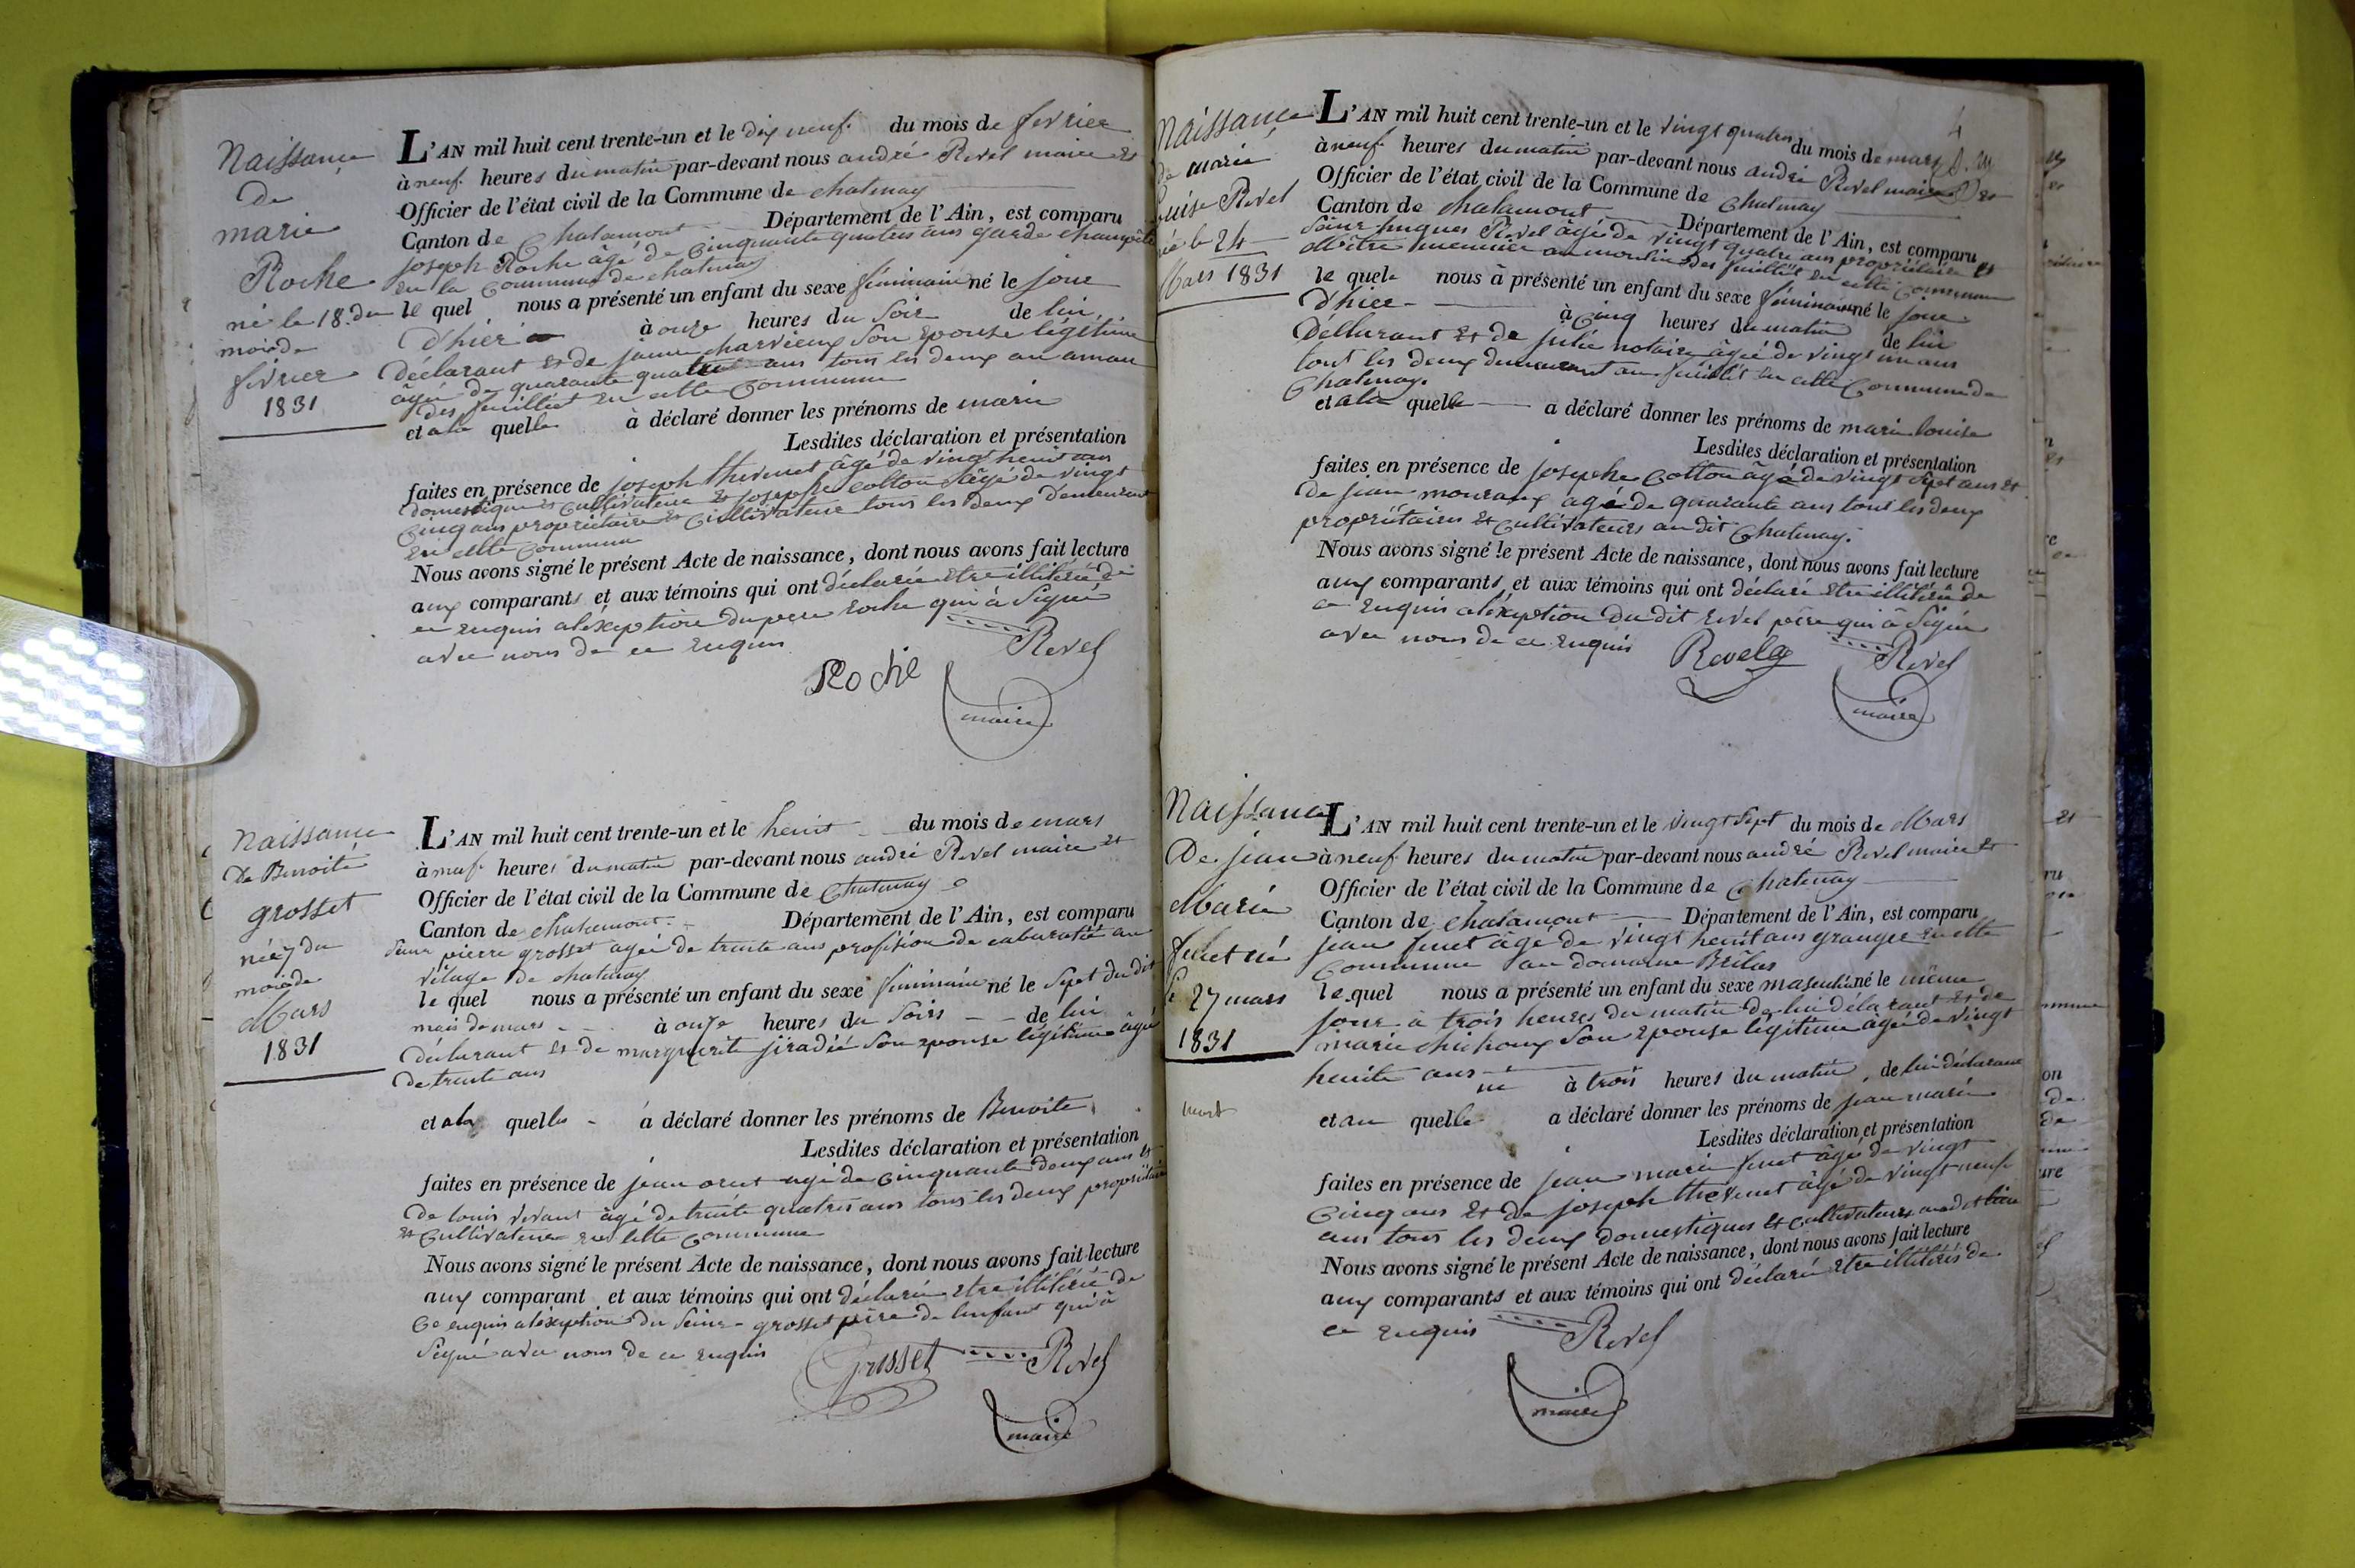 Naissance
de
marie
Roche
né le 18. du
mois de
fevrier
1831
L'AN mil huit cent trente-un et le dix neuf du mois de fevrier
à neuf heures du matin par-devant nous andré Revel maire et
Officier de l'état civil de la Commune de chatenay
Canton de Chalamont Département de l'Ain, est comparu
joseph Roche âgé de Cinquante quatres ans garde champêtre
en la Commune de chatenay
le quel nous a présenté un enfant du sexe féminain né le jour
d'hier à onze heures du soir de lui
déclarant et de janne charvieux son epouse legitime
âgée de quarante quatre ans tous les deux au amau
des feuillet en cette Commune
et a la quelle à déclaré donner les prénoms de marie
Lesdites déclaration et présentation
faites en présence de joseph thevenet âgé de vingt heuit ans
domestique et Cultivateur et josephe Cotton âgé de vingt
Cinq ans propriétaire et Cultivateur tous les deux demeurant
en cette Commune
Nous avons signé le présent Acte de naissance, dont nous avons fait lecture
aux comparants et aux témoins qui ont déclarée etre illiterée de
ce enquis aléxeption du pere roche qui à Signé
avec nous de ce enquis
Roche
Revel
maire
Naissance
de Benoite
grosset
née 7 du
mois de
Mars
1831
L'AN mil huit cent trente-un et le heuit du mois de mars
à neuf heures du matin par-devant nous andré Revel maire et
Officier de l'état civil de la Commune de Chatenay
Canton de chalamont Département de l'Ain, est comparu
Sieur pierre grosset agée de trente ans profision de cabaratié au
vilage de chatenay
le quel nous a présenté un enfant du sexe féminain né le Sept du dit
mois de mars à onze heures du Soirs de lui
déclarant et de marguerite jiradié Son epouse légitime âgée
de trente ans
et a la quelle à déclaré donner les prénoms de Benoite
Lesdites déclaration et présentation
faites en présence de jean orut agé de Cinquante deux ans et
de louis vivant âgé de trente quatres ans tous les deux propriétaire
et Cultivateur en cette Commune
Nous avons signé le présent Acte de naissance, dont nous avons fait lecture
aux comparant et aux témoins qui ont déclarée etre illiterée de
Ce enquis aléxeption du Sieur grosset père de lenfant qui à
Signé avec nous de ce enquis
Grosset
Revel
maire
4
Naissance
de marie
Louise Revel
née le 24
Mars 1831
L'AN mil huit cent trente-un et le vingt quatres du mois de mars
à neuf heures du matin par-devant nous andré Revel maire et
Officier de l'état civil de la Commune de Chatenay
Canton de chalamont Département de l'Ain, est comparu
Sieur hugues Revel âgé de vingt quatre ans propriétaire et
Maître meunier au moulin des feuillet en cette Commune
le quele nous à présenté un enfant du sexe féminain né le jour
d'hier à Cinq heures du matin de lui
Dellarant et de julie notaire âgée de vingt un ans
tout les deux demeurant au feuillet en cette Commune de
Chatenay.
et a la quelle a déclaré donner les prénoms de marie louise
Lesdites déclaration et présentation
faites en présence de josephe Cotton âgé de vingt Sept ans et
de jean mouraux agé de quarante ans tout les deux
propriétaires et Cultivateurs au dit Chatenay.
Nous avons signé le présent Acte de naissance, dont nous avons fait lecture
aux comparants et aux témoins qui ont déclaré etre illiterée de
ce enquis aléxeption du dit revel père qui à Signé
avec nous de ce enquis
Revel
Revel
maire
Naissance
De jean
Marie
né
le 27 mars
1831
mort
L'AN mil huit cent trente-un et le vingt Sept du mois de Mars
à neuf heures du matin par-devant nous andré Revel maire et
Officier de l'état civil de la Commune de Chatenay
Canton de chalamont Département de l'Ain, est comparu
jean âgé de vingt heuit ans granger en cette
Commune au domaine Brêlus
le quel nous a présenté un enfant du sexe masculin né le même
jour à trois heures du matin de lui délarant et de
marie Son epouse legitime agée de vingt
heuite ans
né à trois heures du matin, de lui déclarant
et au quelle a déclaré donner les prénoms de jean marie
Lesdites déclaration et présentation
faites en présence de jean marie âgé de vingt
Cinq ans et de joseph thevenet âgé de vingt neuf
ans tous les deux domestiques et cultivateurs au dit lieu
Nous avons signé le présent Acte de naissance, dont nous avons fait lecture
aux comparants et aux témoins qui ont déclaré etre illiterés de
ce enquis
Revel
maire